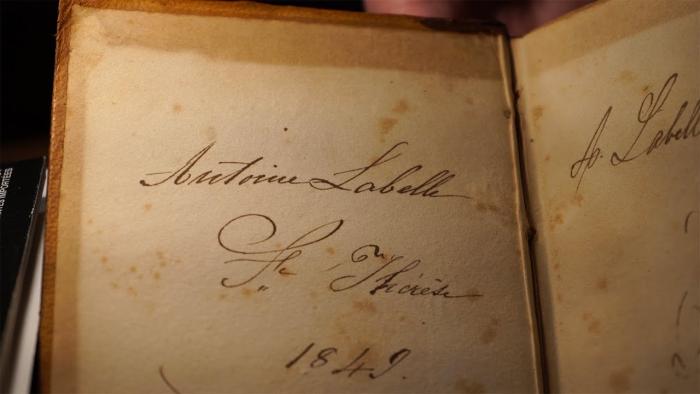 Antoine Labelle
Ste Thérèse
1849.
A. Labelle